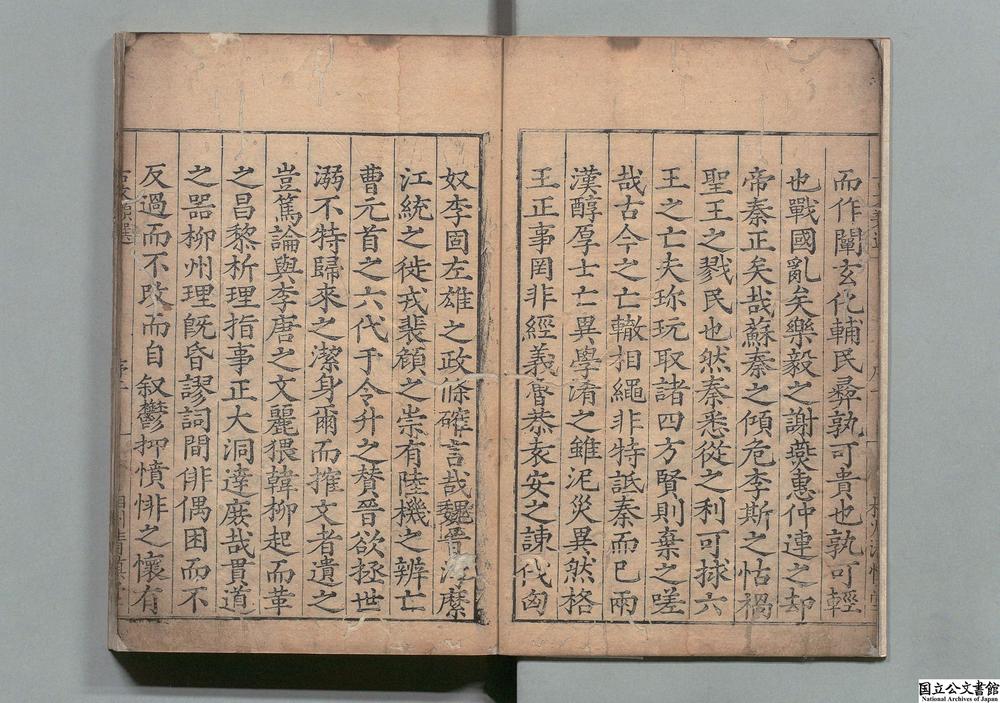 而作闡玄化輔民彞孰可貴也孰可輕
也戰國亂矣樂毅之謝燕惠仲連之却
帝秦正矣哉蘇秦之傾危李斯之怙禍
聖王之戮民也然秦悉從之利可捄六
王之亡夫珎玩取諸四方賢則棄之嗟
哉古今之亡轍相繩非特詆秦而已兩
漢醇厚士亡異學淆之雖泥災異然格
王正事罔非經義魯恭袁安之諫伐匈
奴李固左雄之政條確言哉魏晉淪縻
江統之徙戎裴頠之崇有陸機之辨亡
曹元首之六代于令升之賛晉欲拯世
溺不特歸來之潔身爾而摧文者遺之
豈篤論與李唐之文麗猥韓柳起而革
之昌黎析理指事正大洞達廐哉貫道
之器柳州理旣昏謬詞間俳偶困而不
反過而不改而自叙鬱抑憤悱之懷有
國立公文書館
National Archives of Japan